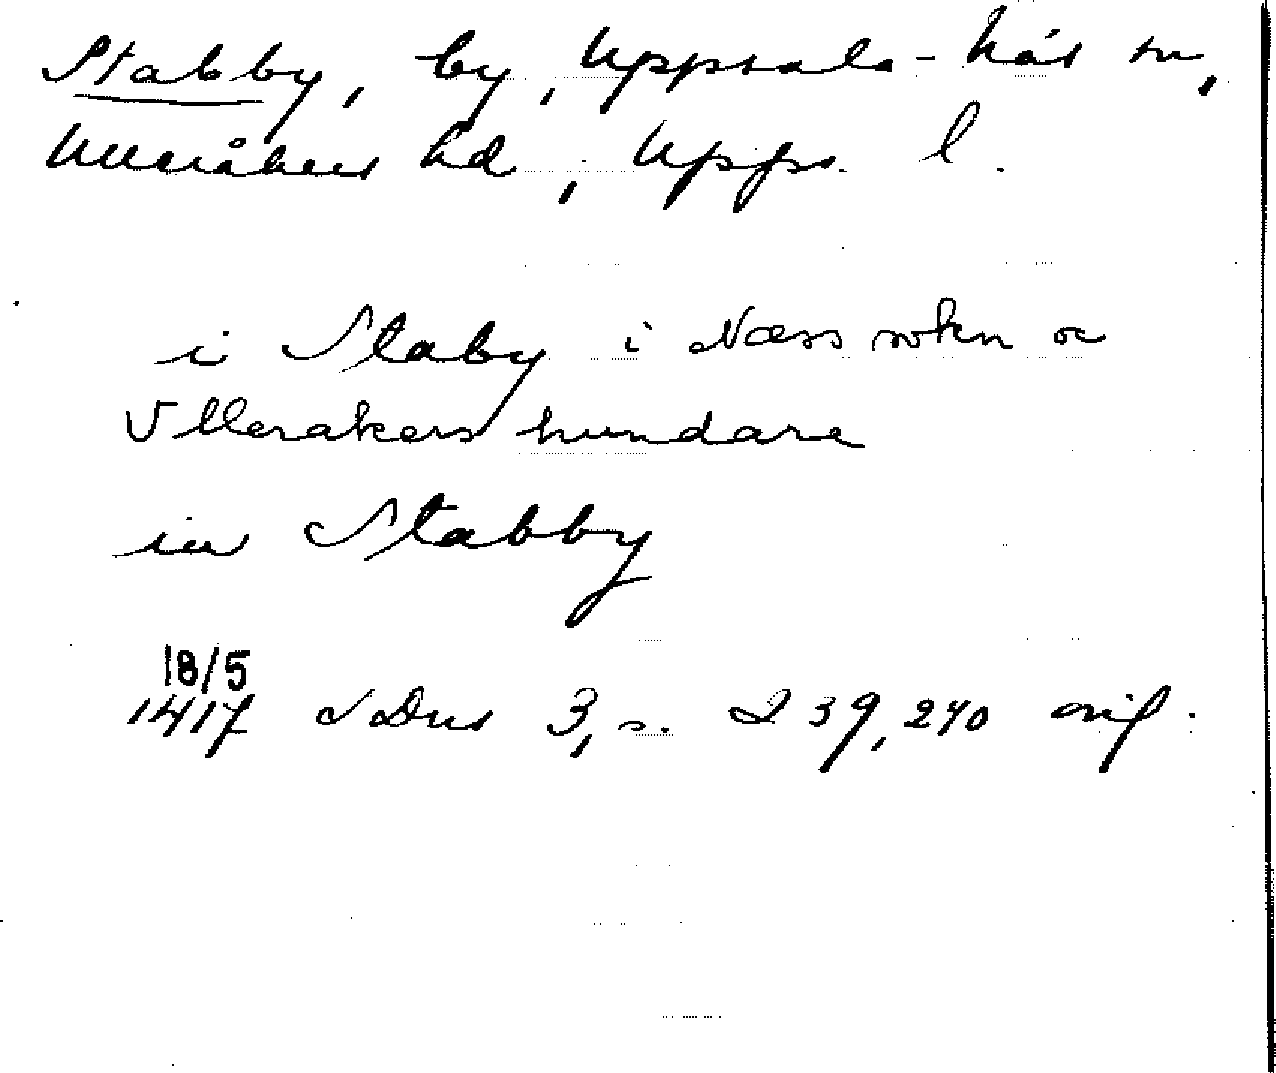 Stabby, by, Uppsala-Näs sn,
Ulleråkers hd, Upps. l.
i Staby i Næss sokn oc
Ullerakers hundare
in Stabby
18/5
1417 SDns 3, s. 239, 240 orig.